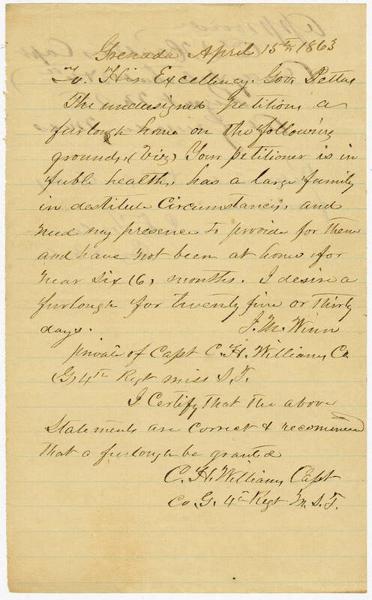 Grenada April 15th 1863
To His Excellency Gov Pettus
The undersigned petitions a
furlough home on the following
grounds, (viz) Your petitioner is in
feeble health, has a large family
in destitute Circumstances and
need my presence to provide for them
and have not been at home for
near Six (6) months. I desire a
furlough for twenty five or thirty
days. J. M. Winn
private of Capt C. H. Williams Co
G, 4th Regt Miss S. T.
I Certify that the above
Statements are correct & recommend
that a furlough be granted
C. H. Williams Capt
Co. G. 4th Regt M. S. T.